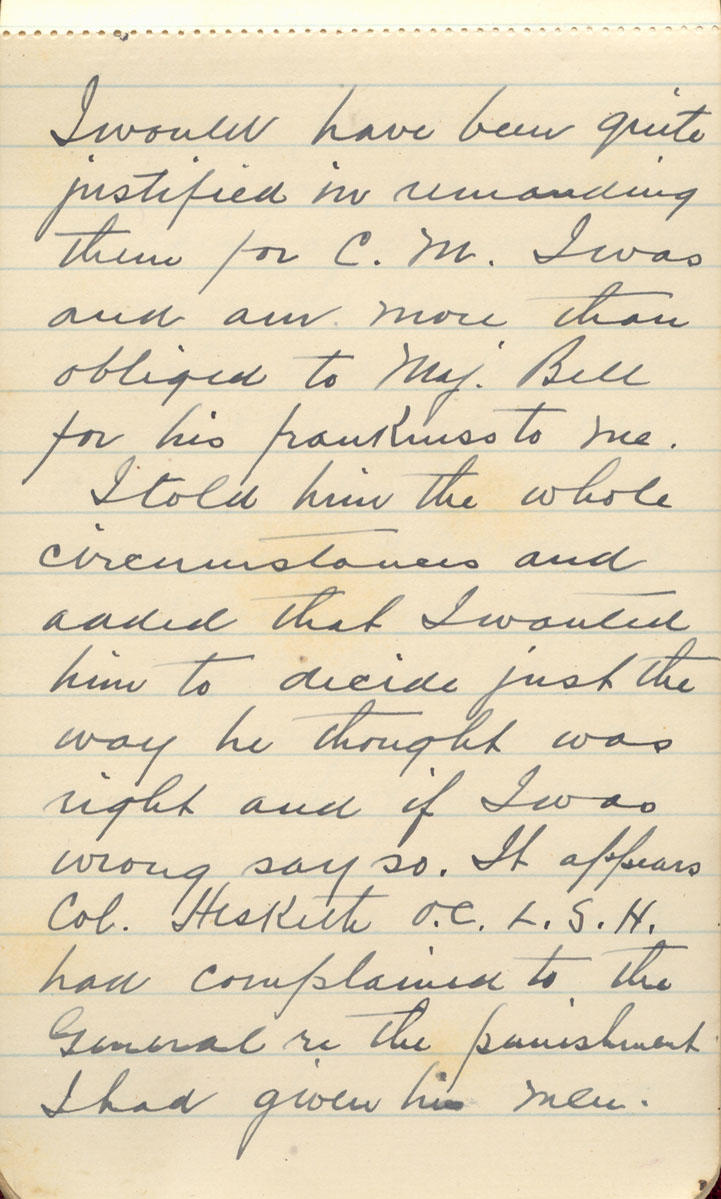 I would have been quite
justified in remanding
them for C. M. I was
and am more than
obliged to Maj. Bell
for his frankness to me.
I told him the whole
circumstances and
added that I wanted
him to decide just the
way he thought was
right and if I was
wrong say so. It appears
Col. Hesketh O.C. L.S.H.
had complained to the
General re the punishment
I had given his men.